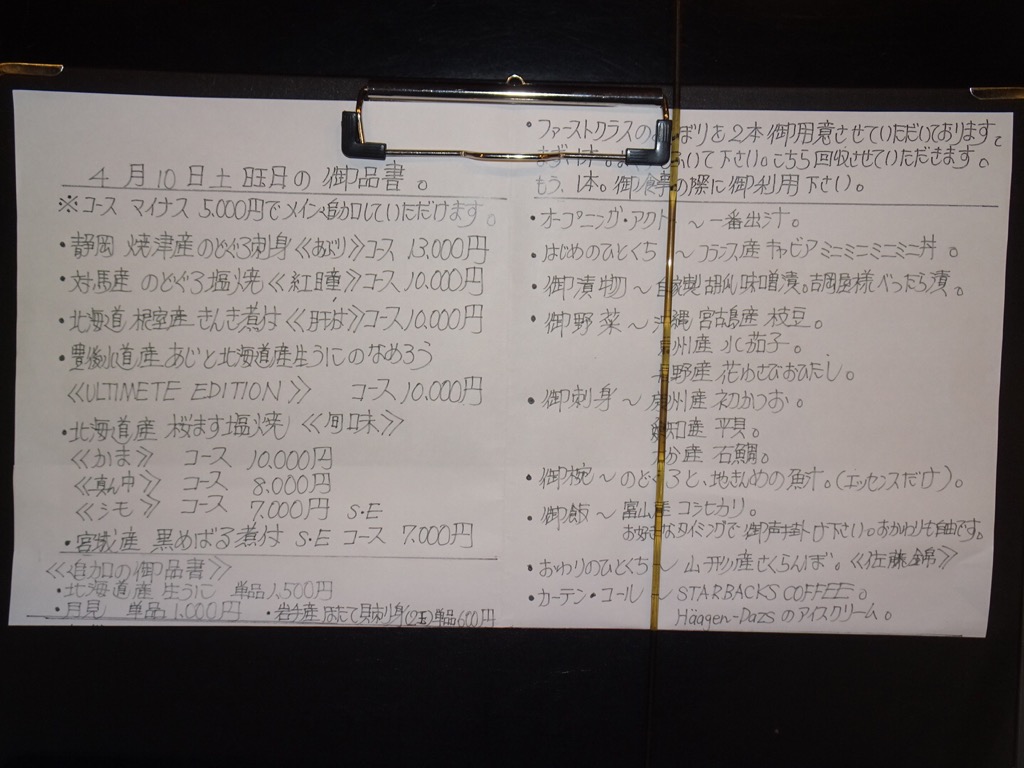 4月10日土曜日の御品書。
※コース マイナス 5.000円でメイン追加していただけます。
・静岡 焼津産のどぐろ刺身《あぶり》コース 13.000円
・対馬産 のどぐろ塩焼《紅瞳》コース10.000円
・北海道 根室産きんき煮付《肝付》コース10.000円
・豊後水道産あじと北海道産生うにのなめろう
《ULTIMETE EDITION》 コース 10.000円
・北海道産 桜ます塩焼《旬味》
《かま》 コース 10.000円
《真ん中》 コース 8.000円
《シモ》 コース 7.000円 S・E
・宮城産 黒めばる煮付 S・E コース 7.000円
《追加の御品書》
・北海道産 生うに 単品1.500円
・月見 単品1.000円 ・岩手産ほたて貝刺身(2玉)単品600円
・ファーストクラスの ぼりを2本御用意させていただいております。
まず1本。 ふいて下さい。こちら回収させていただきます。
もう、1本。御食事の際に御利用下さい。
・オープニング・アクト 〜 一番出汁。
・はじめのひとくち 〜 フランス産キャビアミニミニミニミニ丼。
・御漬物〜自家製胡瓜味噌漬。吉岡屋様べったら漬。
・御野菜〜沖縄 宮古島産 枝豆。
泉州産 水茄子。
長野産 花わさびおひたし。
・御刺身〜 産 初かつお。
愛知産 平貝。
大分産 石鯛。
・御椀〜のどぐろと、地きんめの魚汁。(エッセンスだけ)。
・御飯〜 富山産 コシヒカリ。
お好きなタイミングで御声掛け下さい。おかわりも自由です。
・おわりのひとくち〜 山形産さくらんぼ。《佐藤錦》
・カーテン・コール〜 STARBACKS COFFEE。
Häagen-Dazsのアイスクリーム。